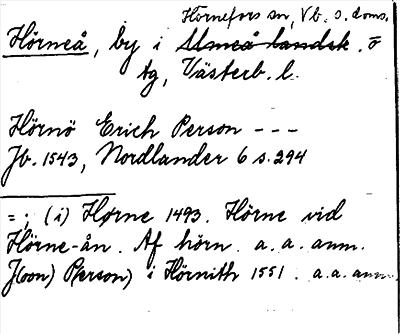 Hörnefors sn, Vb. s. doms.
Hörneå, by i Umeå landsk. o
tg, Västerb. l.
Hörnö Erich Person - - -
Jb. 1543, Nordlander 6 s. 294
= ; (i) Hørne 1493. Hörne vid
Hörne-ån. Af hörn. a. a. anm.
J(oon) P(erson) i Hörnith 1551. a. a. anm.